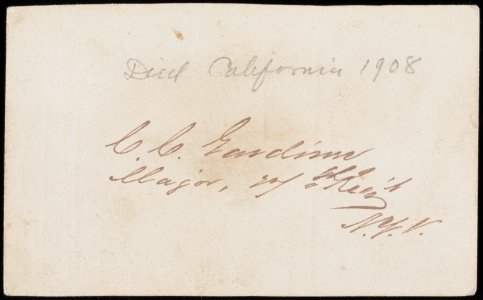 Died California 1908
C. C. Gardiner
Major, 27 Reg't
N.Y.V.